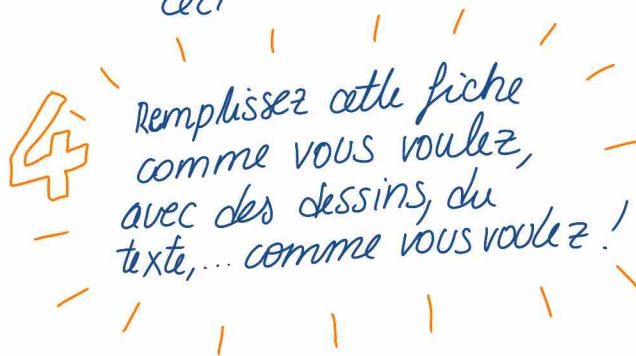 ceci
4
Remplissez cette fiche
comme vous voulez,
avec des dessins, du
texte,... comme vous voulez!